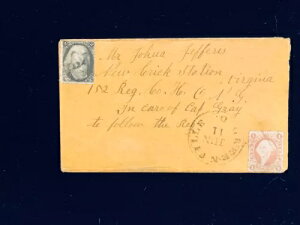 Mr Johns Jefferis
New Crick Station
Virginia
152 Reg. C. H. O. N. G.
In care of Cap Gray
to follow the Reg